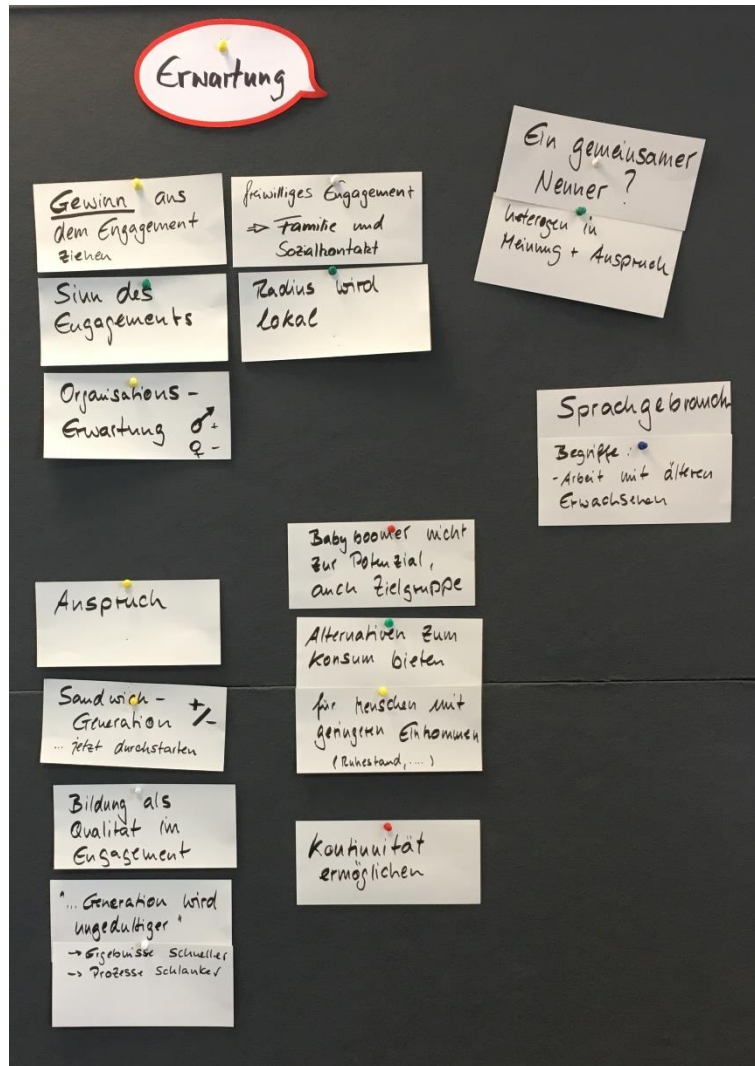 Erwartung
Gewinn aus
dem Engagement
ziehen
Sinn des
Engagements
Organisations-
Erwartung ♂+
♀-
freiwilliges Engagement
⇒ Familie und
Sozialkontakt
Radius wird
lokal
Ein gemeinsamer
Nenner?
heterogen in
Meinung + Anspruch
Sprachgebrauch
Begriffe:
- Arbeit mit älteren
Erwachsenen
Anspruch
Sandwich-
Generation +/-
... jetzt durchstarten
Bildung als
Qualität im
Engagement
"... Generation wird
ungedultiger"
→ Ergebnisse schneller
→ Prozesse schlanker
Babyboomer nicht
zur Potenzial,
auch Zielgruppe
Alternativen zum
Konsum bieten
für Menschen mit
geringeren Einkommen
(Ruhestand, ....)
Kontinuität
ermöglichen